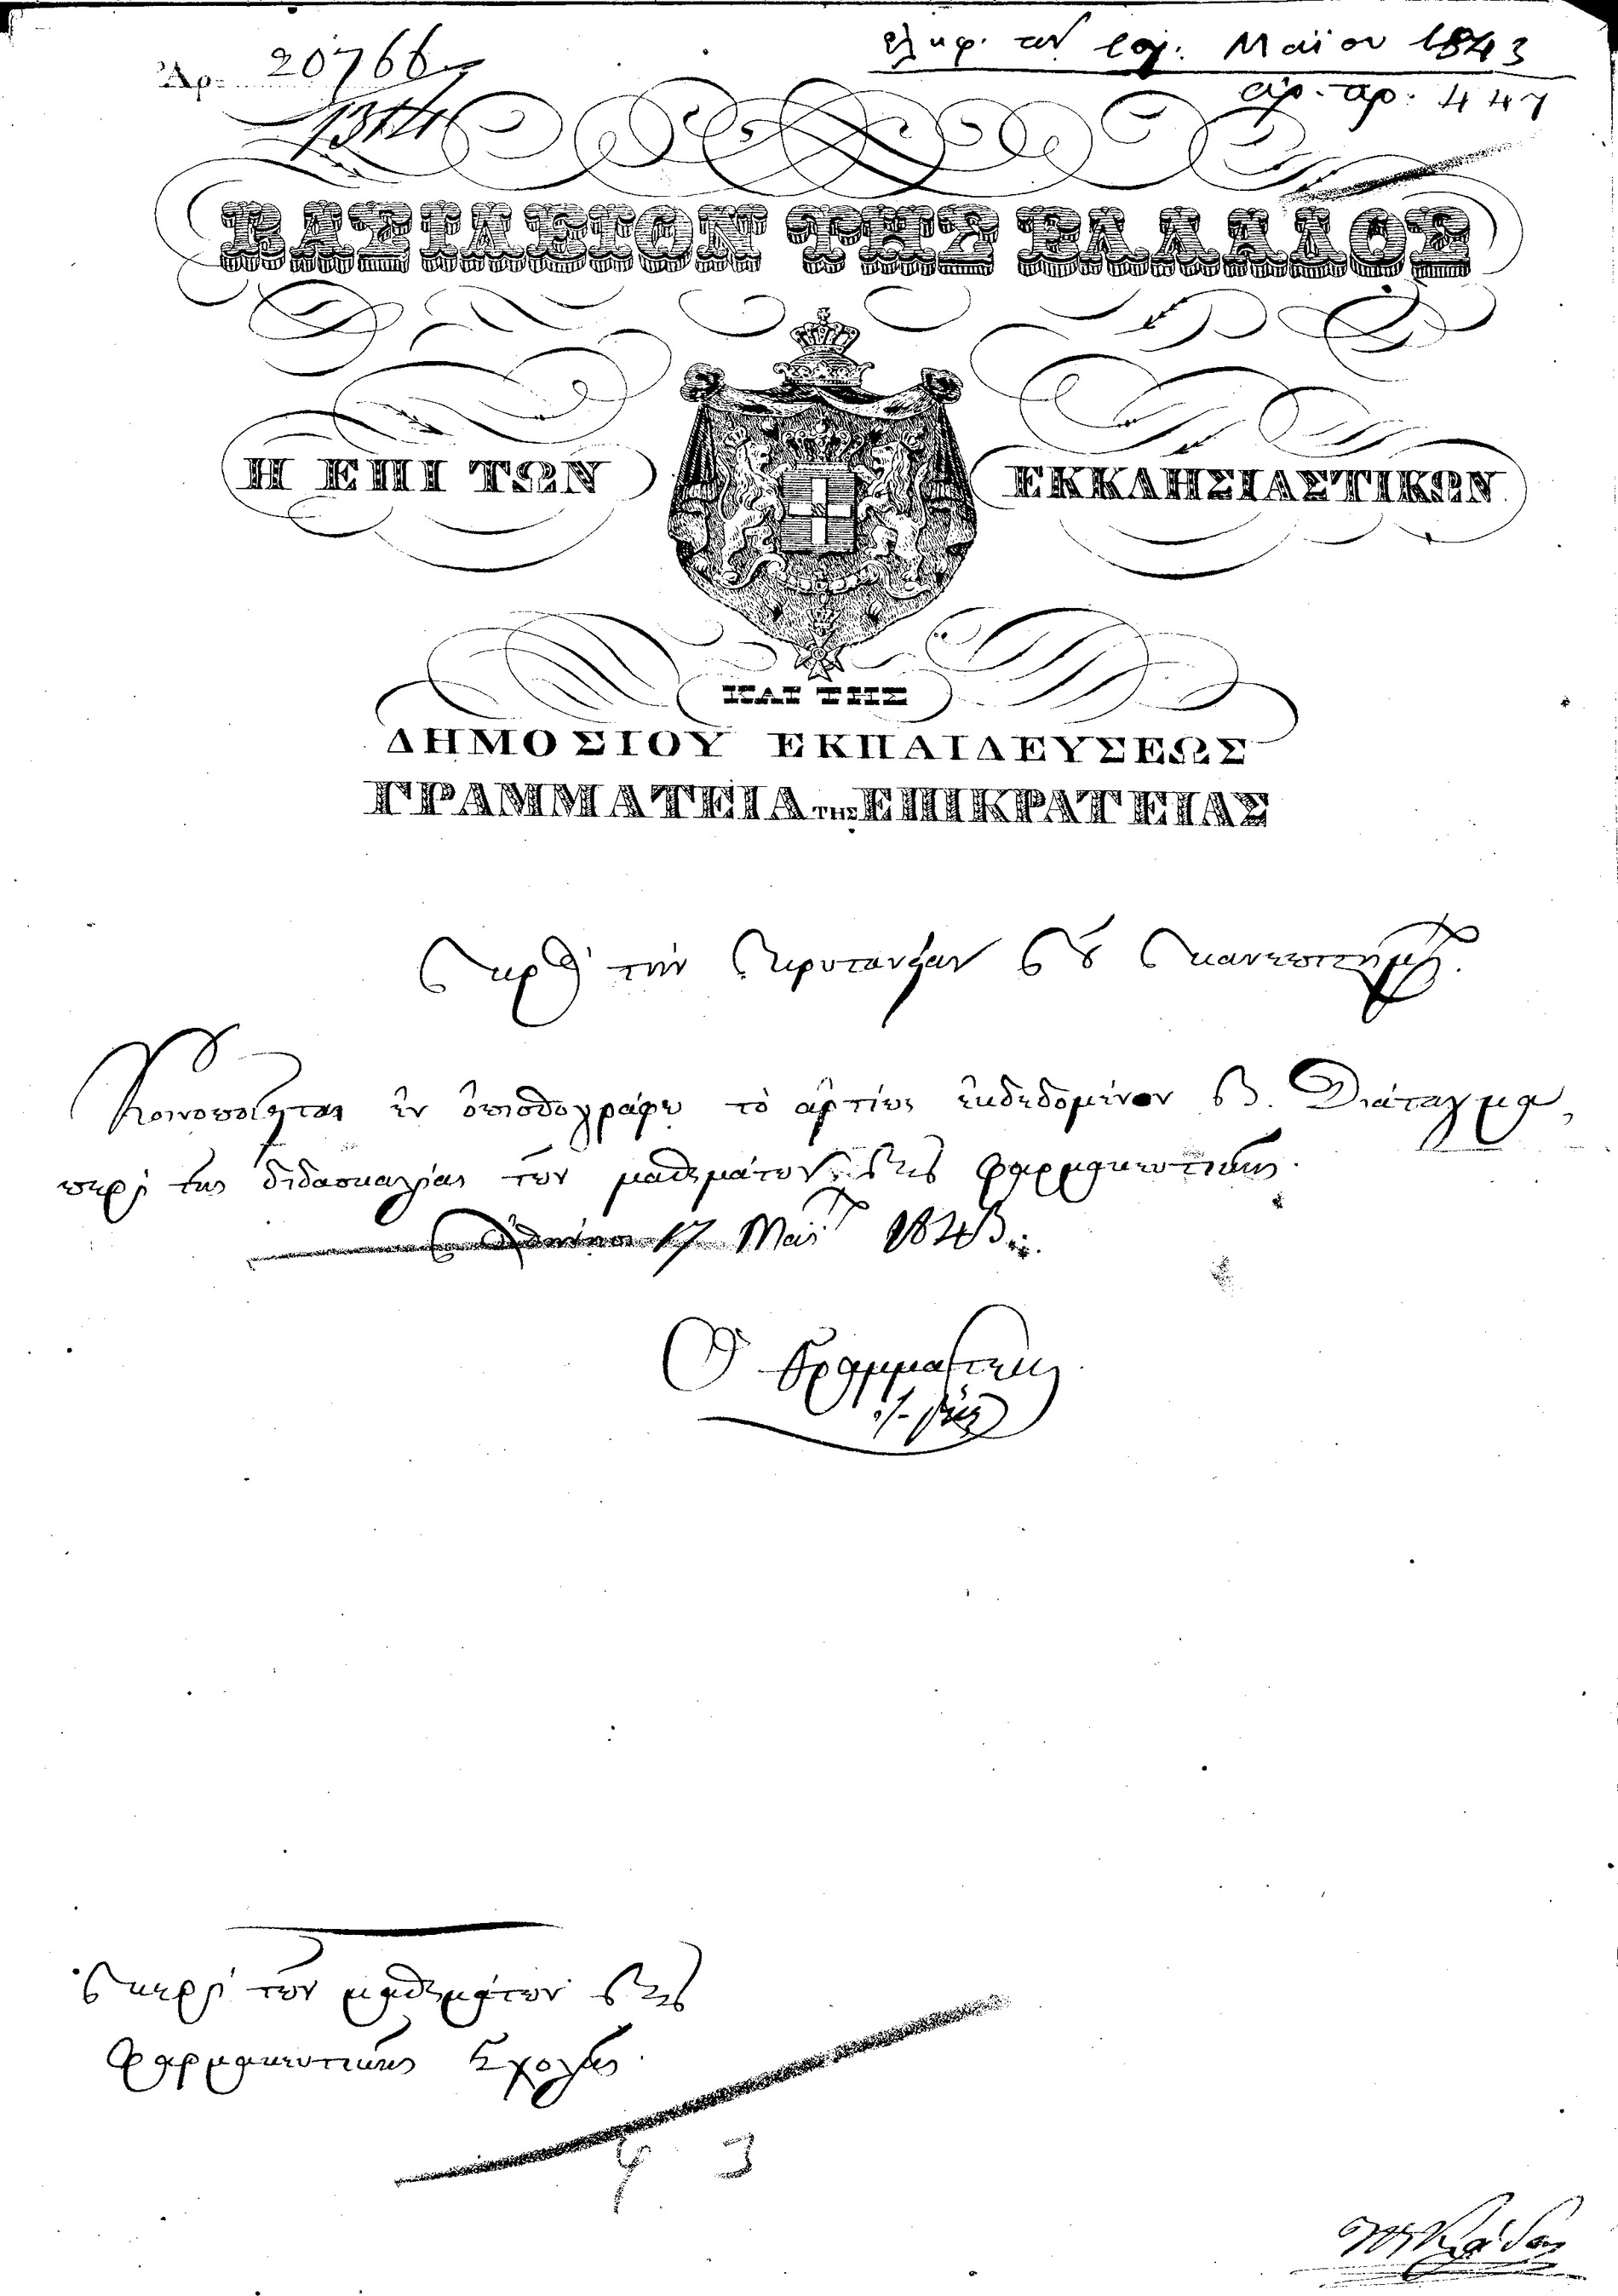 Ἀρ. 20766
1314
ἐλήφ. τὴν 19. Μαΐου 1843
ἀρ. πρ. 447
ΒΑΣΙΛΕΙΟΝ ΤΗΣ ΕΛΛΑΔΟΣ
Η ΕΠΙ ΤΩΝ ΕΚΚΛΗΣΙΑΣΤΙΚΩΝ
ΚΑΙ ΤΗΣ
ΔΗΜΟΣΙΟΥ ΕΚΠΑΙΔΕΥΣΕΩΣ
ΓΡΑΜΜΑΤΕΙΑ ΤΗΣ ΕΠΙΚΡΑΤΕΙΑΣ
Πρὸς τὴν Πρυτανείαν τοῦ Πανεπιστημίου.
Κοινοποιεῖται ἐν ὀπισθογράφῳ τὸ ἀρτίως ἐκδεδομένον Β. Διάταγμα,
περὶ τῆς διδασκαλίας τῶν μαθημάτων τῆς φαρμακευτικῆς.
Ἀθῆναι 17 Μαΐου 1843
Ὁ Γραμματεὺς
Περὶ τῶν μαθημάτων τῆς
Φαρμακευτικῆς Σχολῆς.